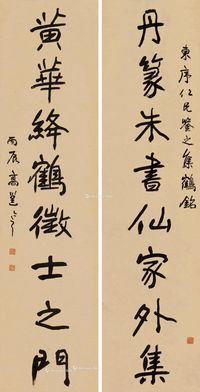 東序仁兄鑒之集鶴銘
丹篆朱書仙家外集
黃華絳鶴徵士之門
丙辰高邕